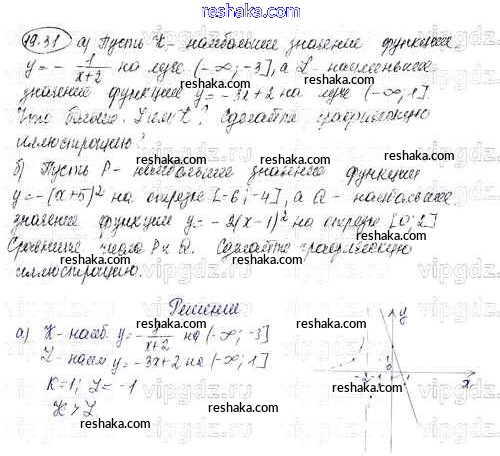 reshaka.ru
19.31 а) Пусть K - наибольшее значение функции
y = - 1/(x+2) на луче (-∞; -3], а L - наименьшее
значение функции y = -3x+2 на луче (-∞; 1].
Что больше: L или K? Сделайте графическую
иллюстрацию?
reshaka.ru
б) Пусть P - наибольшее значение функции
y = -(x+5)² на отрезке [-6; -4], а Q - наибольшее
значение функции y = -2(x-1)² на отрезке [0; 2]
reshaka.ru
Сравните числа P и Q. Сделайте графическую
иллюстрацию.
reshaka.ru
Решение
а) K - наиб. y = - 1/(x+2) на (-∞; -3]
L - наим y = -3x+2 на (-∞; 1]
K = 1; L = -1
K > L
y
x
reshaka.ru